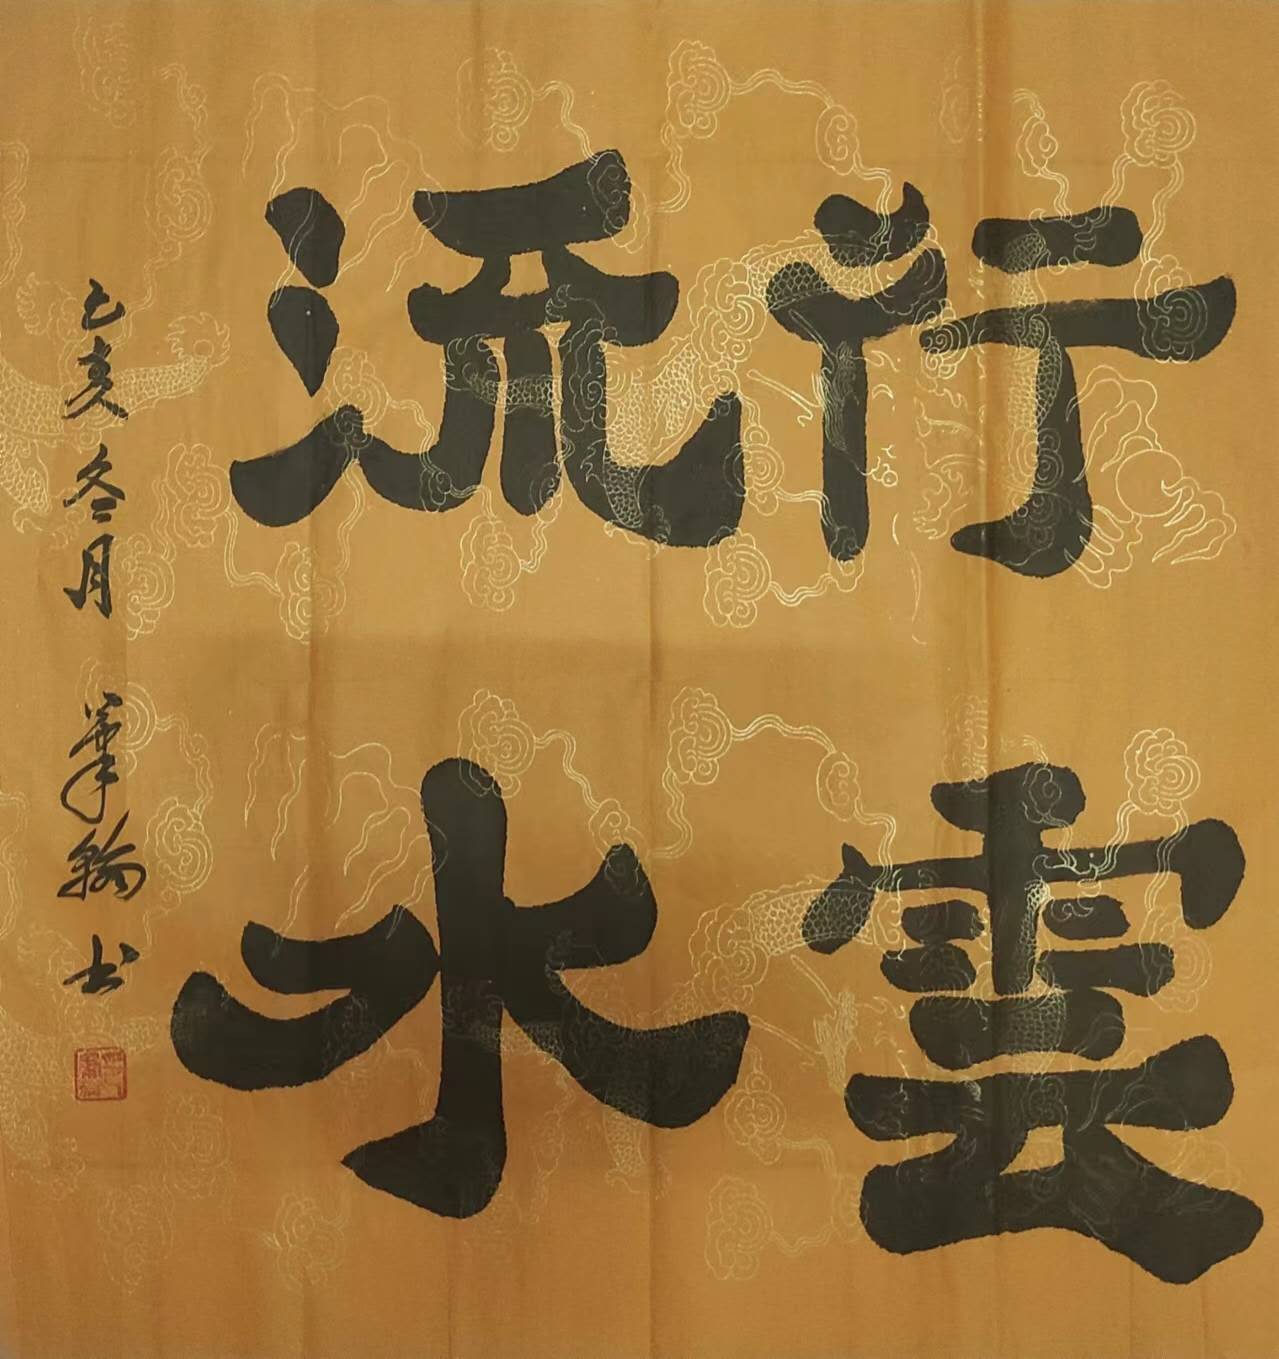 行雲
流水
乙亥冬月 筆翰书